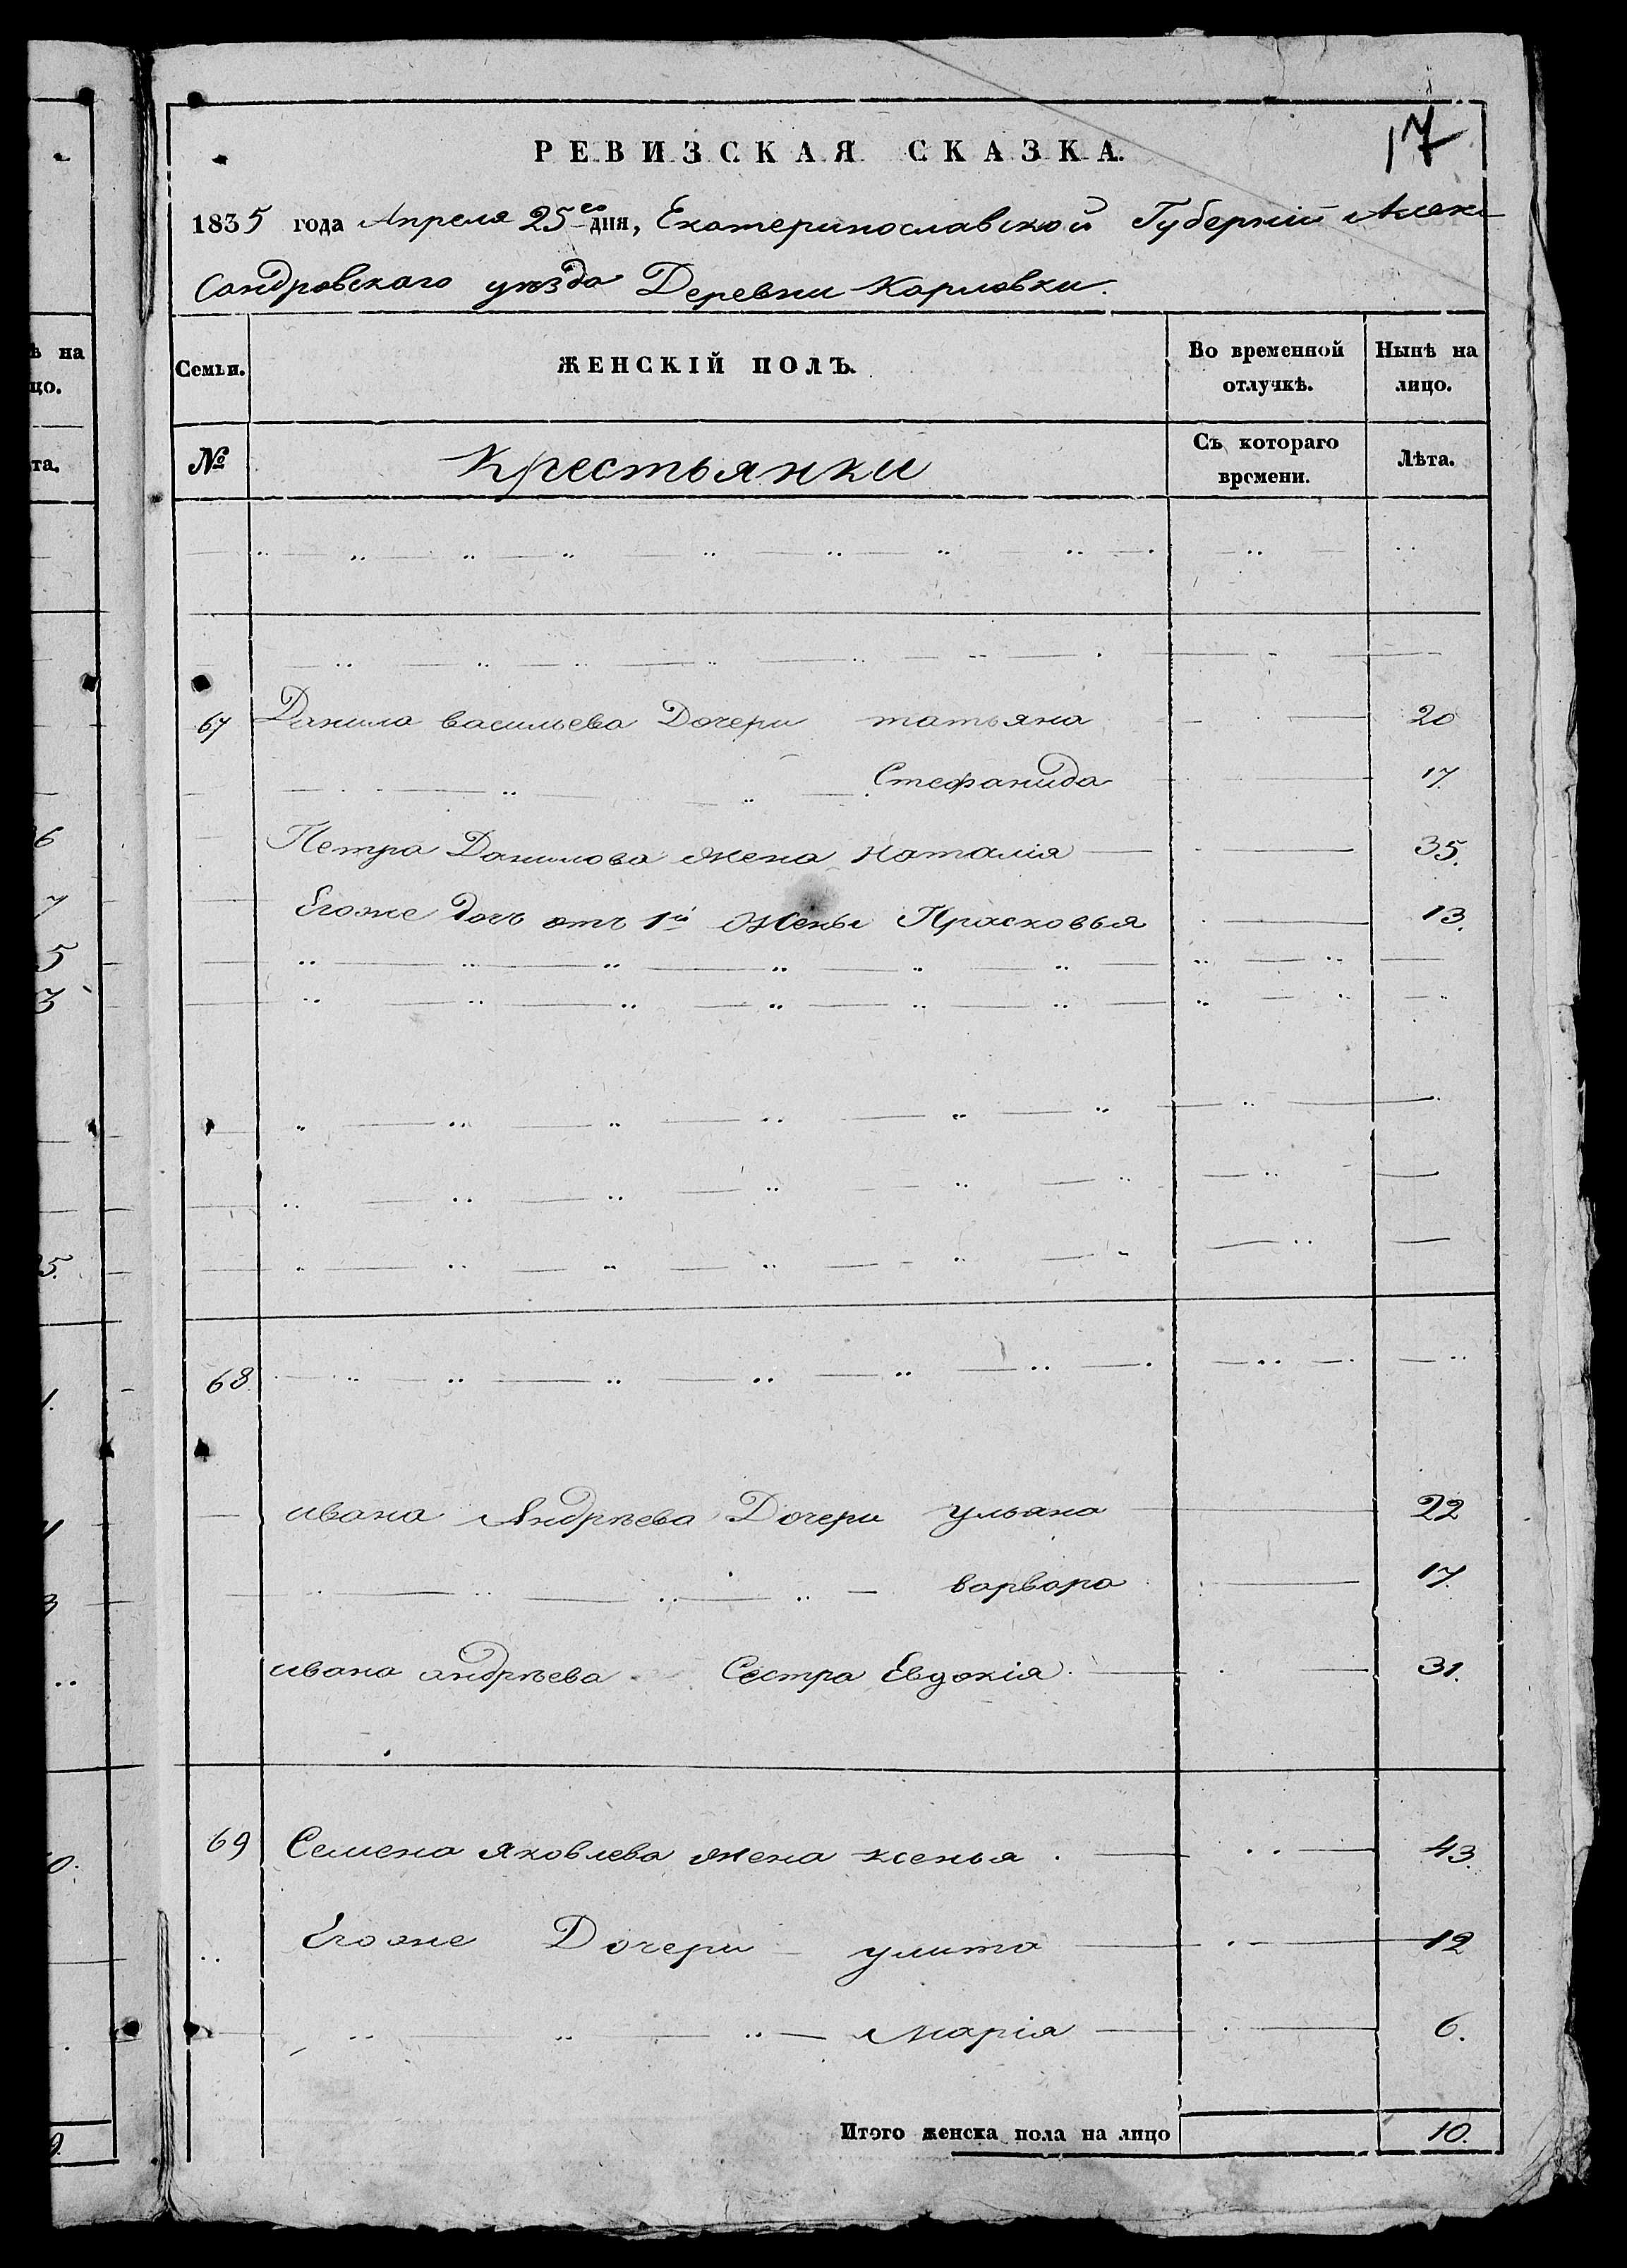 17
РЕВИЗСКАЯ СКАЗКА.
1835 года Апреля 25го дня, Екатеринославской Губерніи Алек-
сандровскаго уѣзда Деревни Карловки.
Семьи. ЖЕНСКІЙ ПОЛЪ. Во временной отлучкѣ. Нынѣ на лицо.
№ Крестьянки Съ котораго времени. Лѣта.
67 Данила васильева Дочери татьяна 20
Стефанида 17.
Петра Данилова жена наталія 35.
Егоже дочь отъ 1й жены Прасковья 13.
68.
ивана Андрѣева Дочери ульяна 22
варвара 17.
ивана андрѣева Сестра Евдокія 31.
69 Семена яковлева жена ксенья 43.
Егоже Дочери улита 12
марія 6.
Итого женска пола на лицо 10.